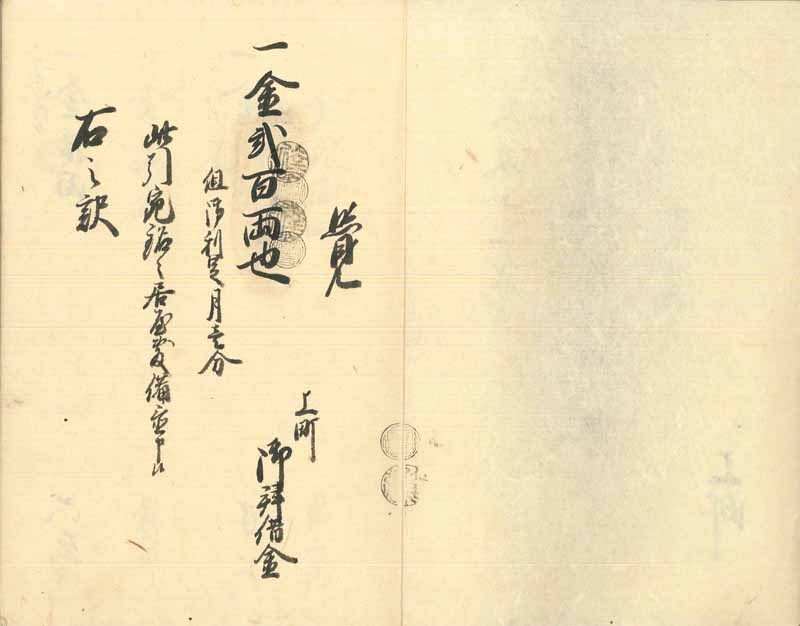 覺
一金弐百両也
上町
御拝借金
但御利足月壱分
此引宛銘々居屋敷備置申候
右之訳